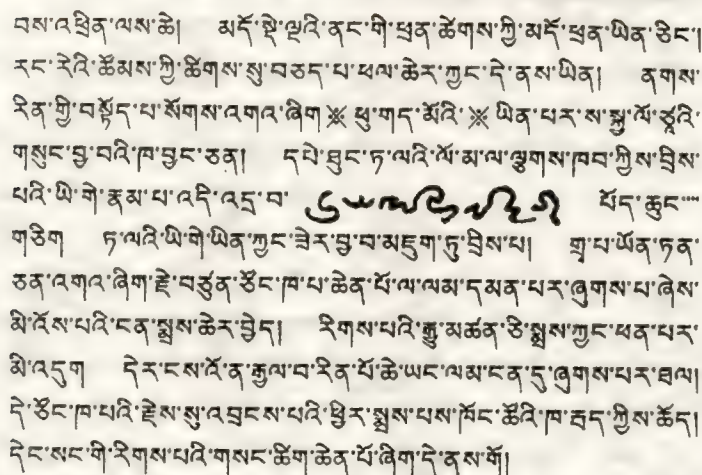 བས་འཕྲིན་ལས་ཆེ། མདོ་སྡེ་ལྔའི་ནང་གི་ཕྲན་ཚེགས་ཀྱི་མདོ་ཕྲན་ཡིན་ཅིང་།
རང་རེའི་ཚོམས་ཀྱི་ཚིགས་སུ་བཅད་པ་ཕལ་ཆེར་ཀྱང་དེ་ནས་ཡིན། ནགས་
རིན་གྱི་བསྟོད་པ་སོགས་འགའ་ཞིག༜ཕུ་གད་མོའི་༜ཡིན་པར་ས་སྐྱ་ལོ་ཙཱའི་
གསུང་བྱ་བའི་ཁ་བྱང་ཅན། དཔེ་ཐུང་ཏ་ལའི་ལོ་མ་ལ་ལྕགས་ཁབ་ཀྱིས་བྲིས་
པའི་ཡི་གེ་རྣམ་པ་འདི་འདྲ་བ་ པོད་ཆུང་
གཅིག ཏ་ལའི་ཡི་གེ་ཡིན་ཀྱང་ཟེར་བྱ་བ་མཇུག་ཏུ་བྲིས་པ། གྲྭ་པ་ཡོན་ཏན་
ཅན་འགའ་ཞིག་རྗེ་བཙུན་ཙོང་ཁ་པ་ཆེན་པོ་ལ་ལམ་དམན་པར་ཞུགས་པ་ཞེས་
མི་འོས་པའི་ངན་སྨྲས་ཆེར་བྱེད། རིགས་པའི་རྒྱུ་མཚན་ཅི་སྨྲས་ཀྱང་ཕན་པར་
མི་འདུག དེར་ངས་འོ་ན་རྒྱལ་བ་རིན་པོ་ཆེ་ཡང་ལམ་ངན་དུ་ཞུགས་པར་ཐལ།
དེ་ཙོང་ཁ་པའི་རྗེས་སུ་འབྲངས་པའི་ཕྱིར་སྨྲས་པས་ཁོང་ཚོའི་ཁ་རྦད་ཀྱིས་ཆོད།
དེང་སང་གི་རིགས་པའི་གསང་ཚིག་ཆེན་པོ་ཞིག་དེ་ནས་གོ།